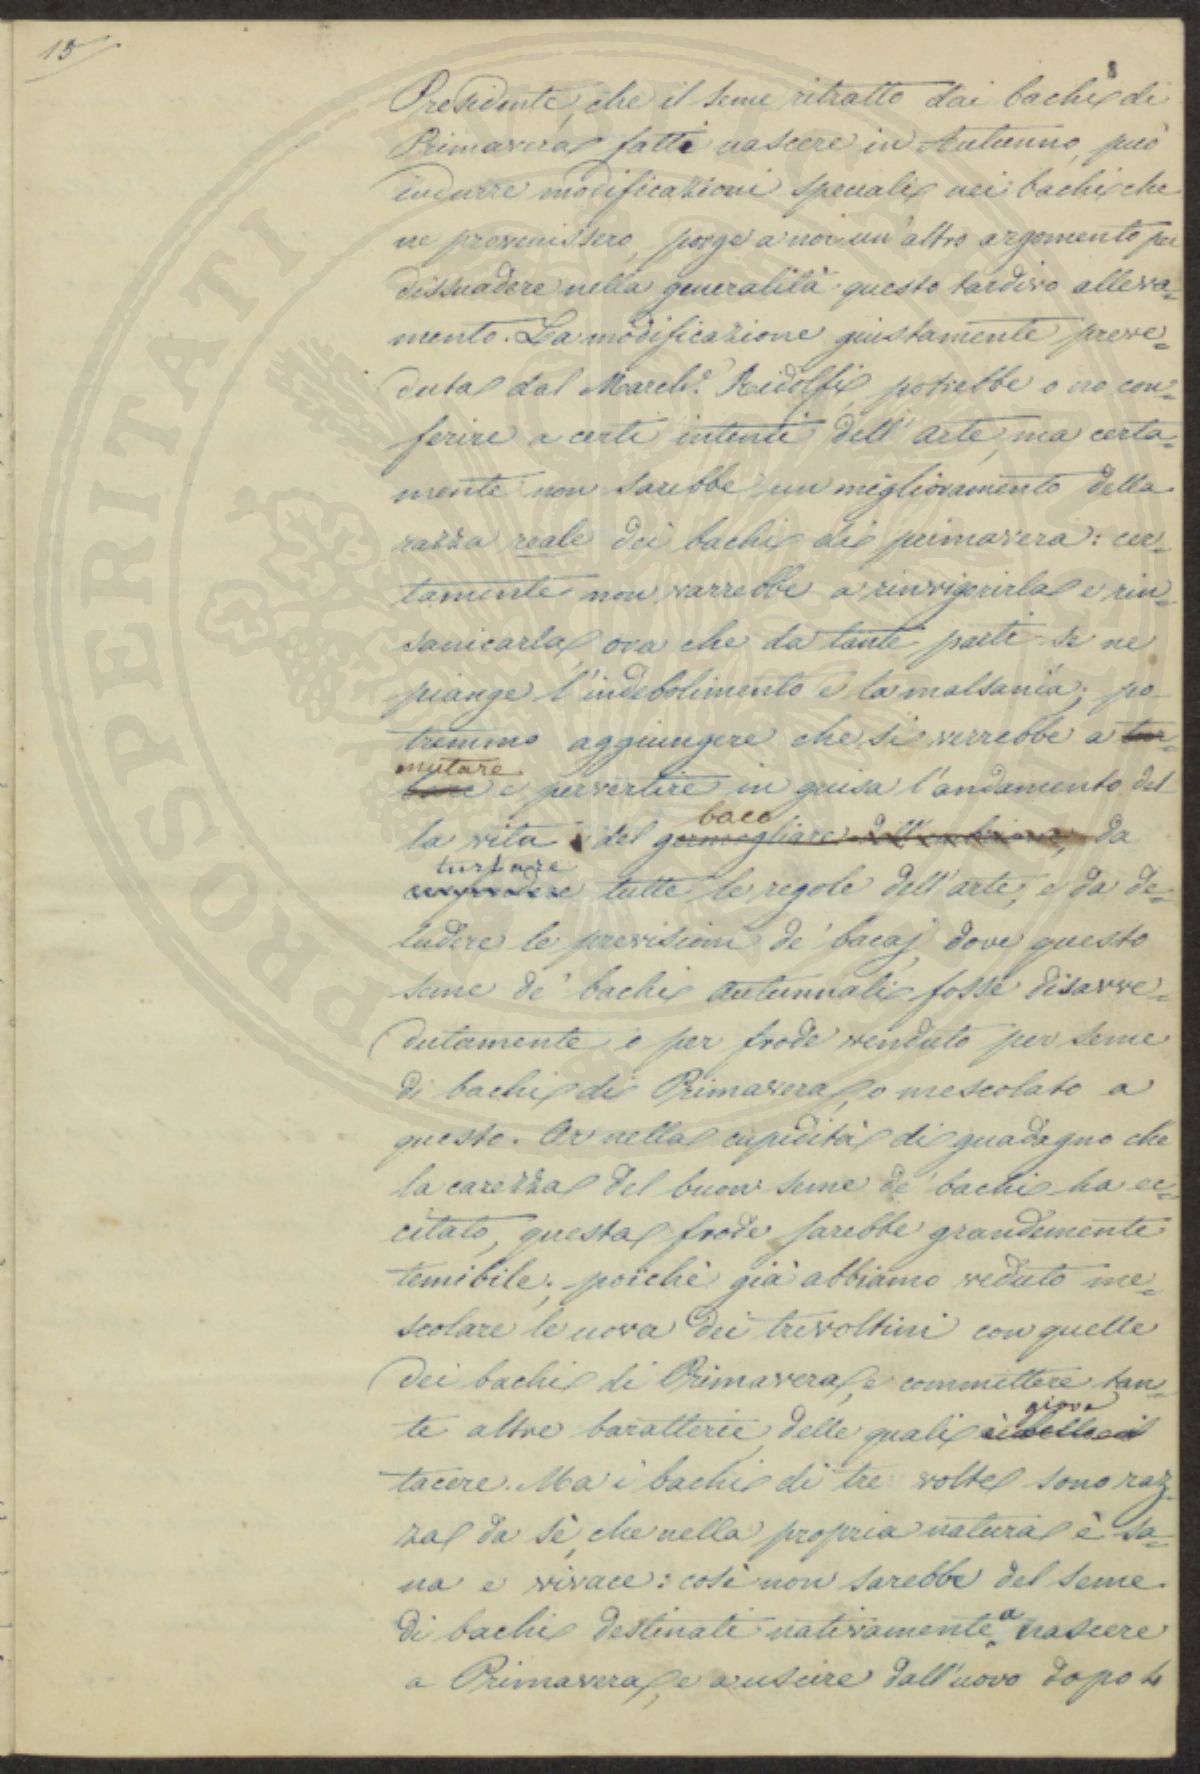 15
8
Presidente, che il seme ritratto dai bachi di
Primavera fatti nascere in Autunno, può
indurre modificazioni speciali nei bachi che
ne provenissero, porge a noi un'altro argomento per
dissuadere nella generalità questo tardivo alleva=
mento. La modificazione giustamente preve=
duta dal March.e Ridolfi, potrebbe o no con=
ferire a certi intenti dell'arte, ma certa=
mente non sarebbe un miglioramento della
razza reale dei bachi di primavera: cer=
tamente non varrebbe a rinvigorirla e rin=
sanicarla, ora che da tante parti se ne
piange l'indebolimento e la malsanìa; po
tremmo aggiungere che si verrebbe a tur=
mutare
bare e pervertire in guisa l'andamento del
baco
la vita del germogliare dell'embrione, da
turbare
tutte le regole dell'arte, e da de=
ludere le previsioni de' bacaj, dove questo
seme de' bachi autunnali fosse disavve=
dutamente o per frode venduto per seme
di bachi di Primavera, o mescolato a
questo. Or nella cupidità di guadagno che
la carezza del buon seme de' bachi ha ec=
citato, questa frode sarebbe grandemente
temibile; poichè già abbiamo veduto me=
scolare le uova dei trevoltini con quelle
dei bachi di Primavera, e committere tan=
giova
te altre baratterie, delle quali è bello il
tacere. Ma i bachi di tre volte sono raz=
za da sè, che nella propria natura è sa=
na e vivace: così non sarebbe del seme
di bachi destinati nativamente a nascere
a Primavera, e a uscire dall'uovo dopo 4